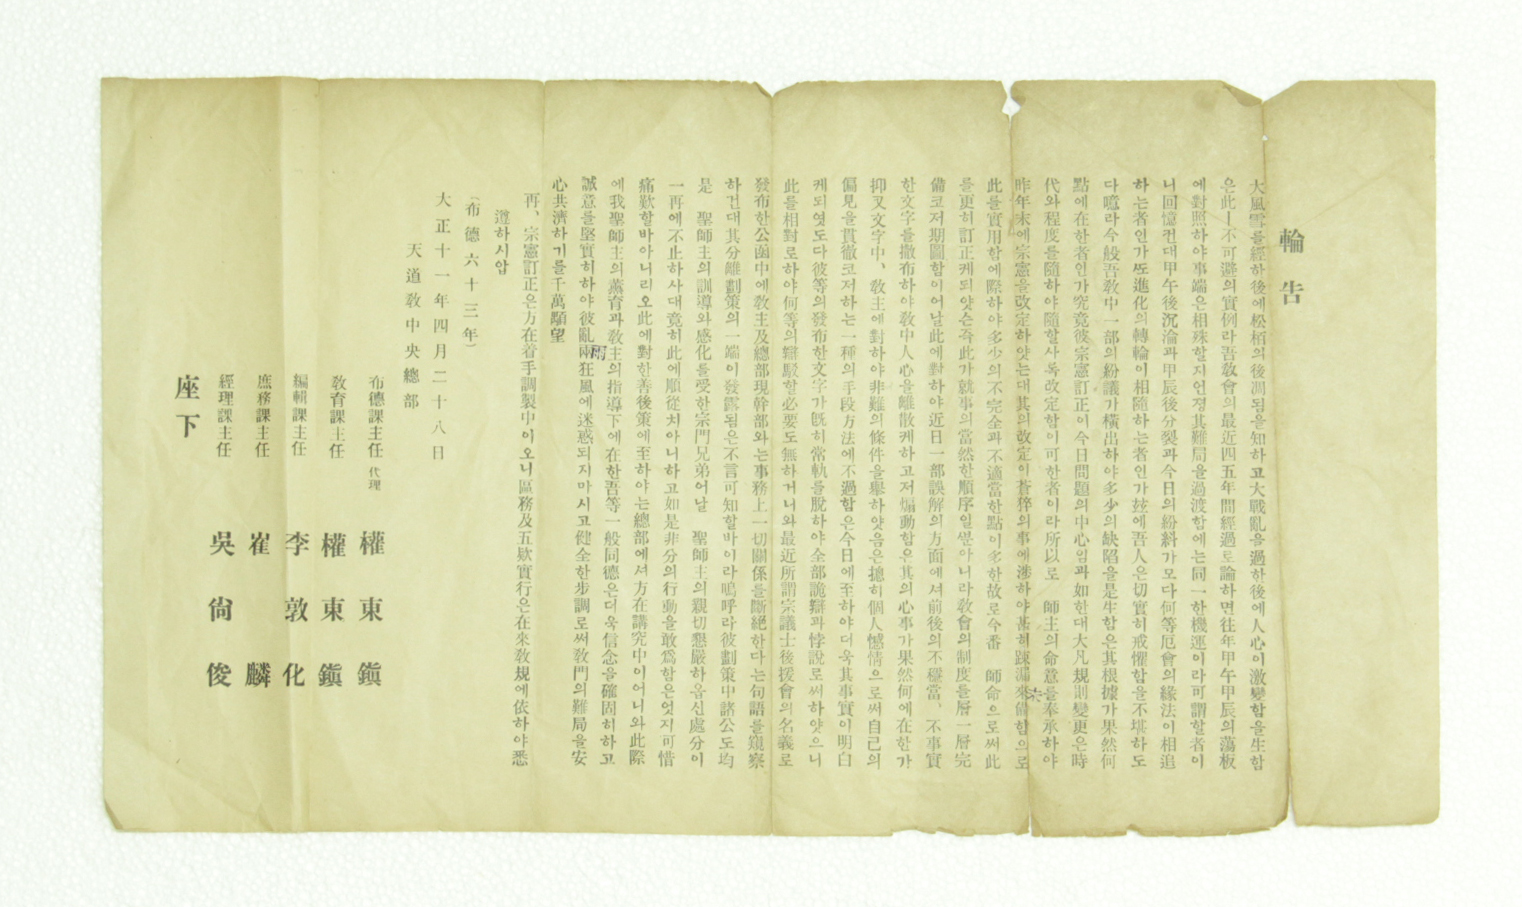 輪告
大風雪를經하後에松栢의後凋됨을知하고大戰亂을過한後에人心이激變함을生함
은此ㅣ不可避의實例라吾敎會의最近四五年間經過로論하면往年甲午甲辰의蕩板
에對照하야事端은相殊할지언졍其難局을過渡함에는同一한機運이라可謂할者이
니回憶컨대甲午後沉淪과甲辰後分裂과今日의紛糾가모다何等厄會의緣法이相追
하는者인가또進化의轉輪이相隨하는者인가玆에吾人은切實히戒懼함을不堪하도
다噫라今般吾敎中一部의紛議가橫出하야多少의缺陷을是生함은其根據가果然何
點에在한者인가究竟彼宗憲訂正이今日問題의中心임과如한대大凡規則變更은時
代와程度를隨하야隨할사록改定함이可한者이라所以로 師主의命意를奉承하야
昨年末에宗憲을改定하얏는대其의改定이蒼猝의事에涉하야甚히踈漏來備함으로
此를實用함에際하야多少의不完全과不適當한點이多한故로今番 師命으로써此
를更히訂正케되얏슨즉此가就事의當然한順序일뿐아니라敎會의制度를層一層完
備코저期圖함이어날此에對하야近日一部誤解의方面에셔前後의不穩當、不事實
한文字를撒布하야敎中人心을離散케하고저煽動함은其의心事가果然何에在한가
抑又文字中、敎主에對하야非難의條件을擧하얏음은摠히個人憾情으로써自己의
偏見을貫徹코저하는一種의手段方法에不過함은今日에至하야더욱其事實이明白
케되엿도다彼等의發布한文字가旣히常軌를脫하야全部詭辯과悖說로써하얏으니
此를相對로하야何等의辯駁할必要도無하거니와最近所謂宗議士後援會의名義로
發布한公函中에敎主及總部現幹部와는事務上一切關係를斷絶한다는句語를窺察
하건대其分離劃策의一端이發露됨은不言可知할바이라嗚呼라彼劃策中諸公도均
是 聖師主의訓導와感化를受한宗門兄弟어날 聖師主의親切懇嚴하옵신處分이
一再에不止하사대竟히此에順從치아니하고如是非分의行動을敢爲함은엇지可惜
痛歎할바아니리오此에對한善後策에至하야는總部에셔方在講究中이어니와此際
에我聖師主의薰育과敎主의指導下에在한吾等一般同德은더욱信念을確固히하고
誠意를堅實히하야彼亂雨狂風에迷惑되지마시고健全한步調로써敎門의難局을安
心共濟하기를千萬願望
再、宗憲訂正은方在着手調製中이오니區務及五欵實行은在來敎規에依하야悉
遵하시압
(布德六十三年)
大正十一年四月二十八日
天道敎中央總部
布德課主任代理 權東鎭
敎育課主任 權東鎭
編輯課主任 李敦化
庶務課主任 崔麟
經理課主任 吳尙俊
座下